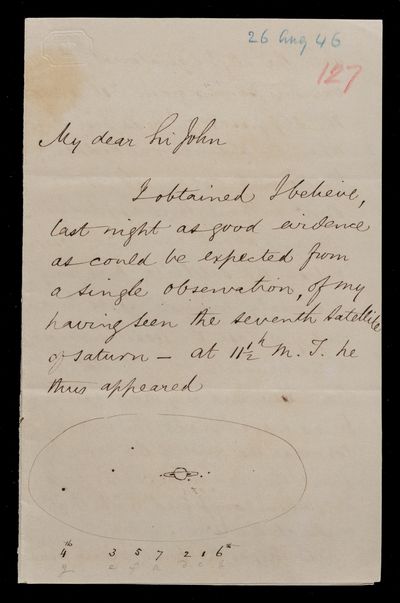 26 Aug 46
127
My dear Sir John
I obtained I believe,
last night as good evidence
as could be expected from
a single observation, of my
having seen the seventh Satellite
of Saturn – at 11½ʰ M. T. he
thus appeared
4ᵗʰ 3 5 7 2 1 6ᵗʰ